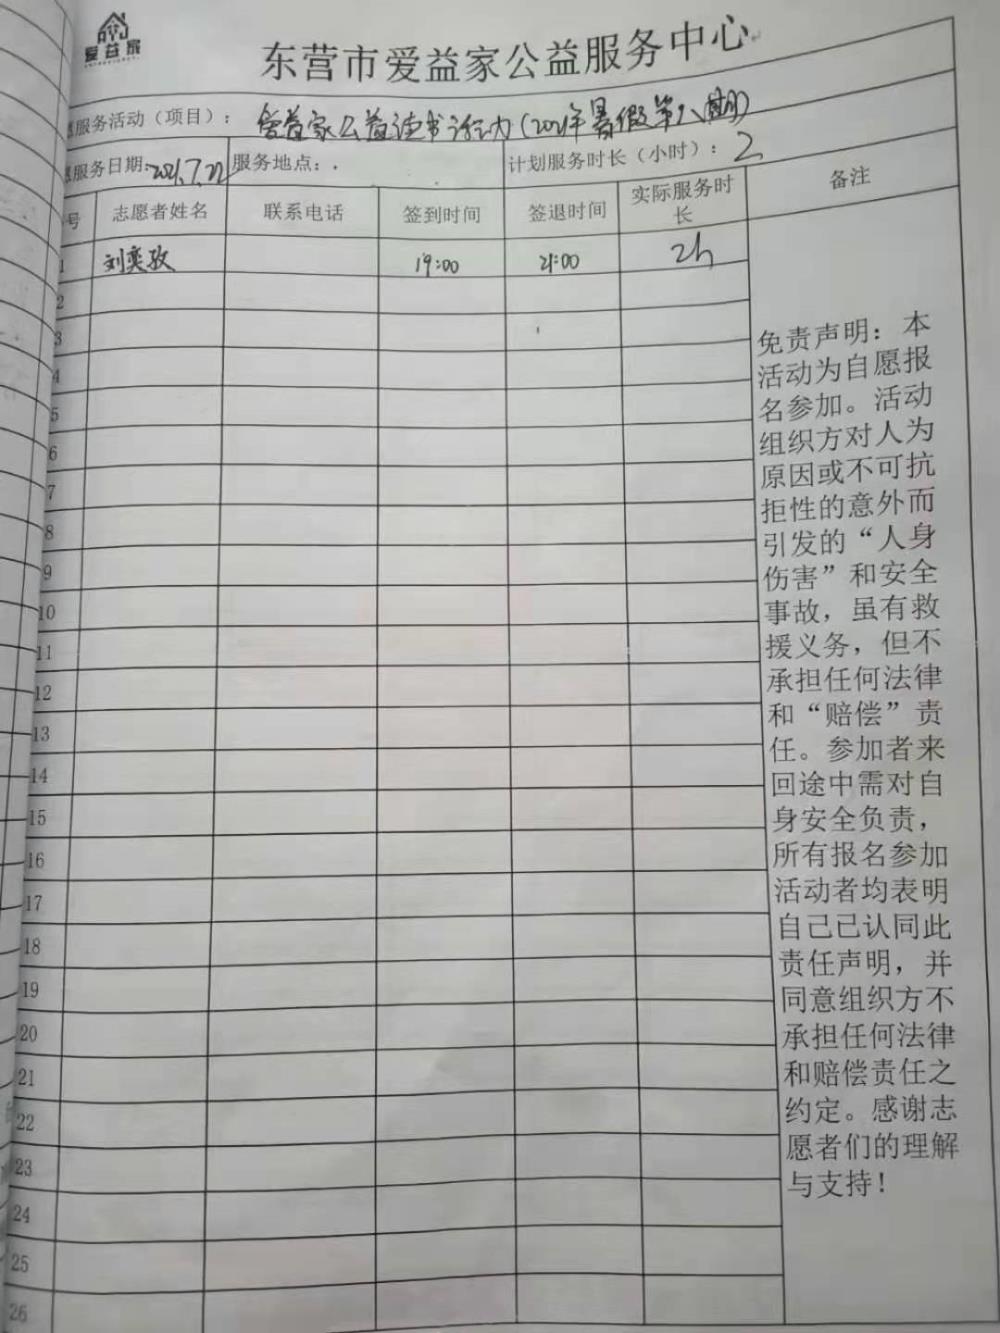 爱益家
东营市爱益家公益服务中心
愿服务活动（项目）： 爱益家公益读书活动（2021年暑假第八期）
愿服务日期:2021.7.22 服务地点：. 计划服务时长（小时）： 2
号 志愿者姓名 联系电话 签到时间 签退时间 实际服务时长 备注
1 刘奕孜 19:00 21:00 2h
2
3
4
5
6
7
8
9
10
11
12
13
14
15
16
17
18
19
20
21
22
23
24
25
26
免责声明：本
活动为自愿报
名参加。活动
组织方对人为
原因或不可抗
拒性的意外而
引发的“人身
伤害”和安全
事故，虽有救
援义务，但不
承担任何法律
和“赔偿”责
任。参加者来
回途中需对自
身安全负责，
所有报名参加
活动者均表明
自己已认同此
责任声明，并
同意组织方不
承担任何法律
和赔偿责任之
约定。感谢志
愿者们的理解
与支持！